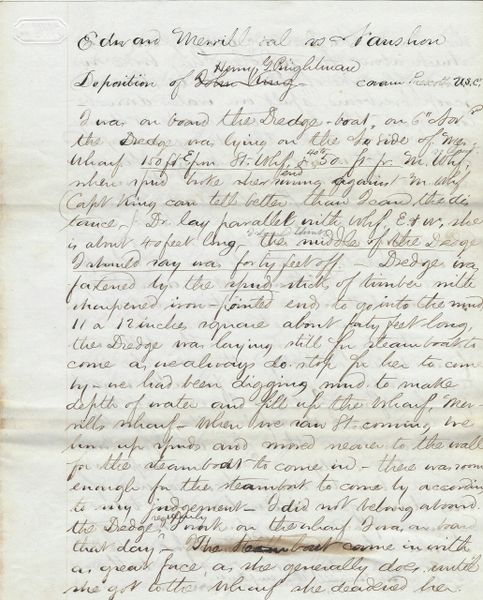 Edward Merrill et al vs Fanshon
Henry G Brightman
Deposition of John King — coram Prescott U.S.C.
I was on board the Dredge-boat, on 6" Nov
the Dredge was lying on the So side of Mer
Wharf 150 ft E fm St. Whf, & 40 or 50 ft fr M. Whf
when spud broke she swung against M. Whf
Capt King can tell better than I can the dis
tance — Dr. lay parallel with Whf E & W, she
is about 40 feet long — the middle of the Dredge
I should think
I should say was forty feet off. — Dredge was
fastened by the spud sticks of timber with
sharpened iron-pointed end to go into the mud
11 a 12 inches square about forty feet long,
the Dredge was laying still for steamboat to
come as we always do. stop for her to come
by — we had been digging mud to make
depth of water and fill up the Wharf, Mer-
rills wharf — When we saw St. coming we
up spuds and moved nearer to the wall
for the steamboat to come in — there was room
enough for the steamboat to come by accordin
to my judgement — I did not belong aboard
regularly
the Dredge I work on the wharf I was on board
that day — The steamboat came in with
as great force, as she generally does until
she got to the wharf she deadened her